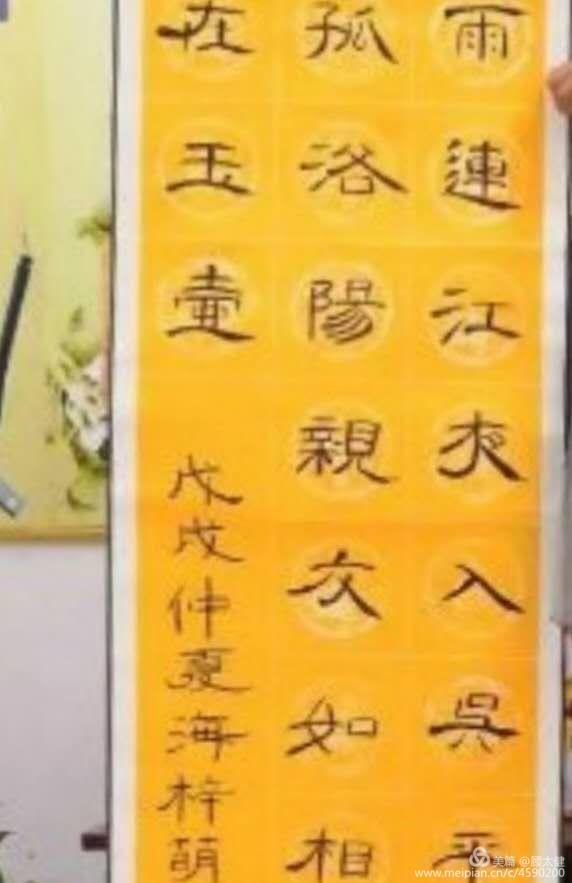 雨連江夜入吳平
孤洛陽親友如相
在玉壺
戊戌仲夏海梓萌
美篇 @顾太健
www.meipian.cn/c/4590200